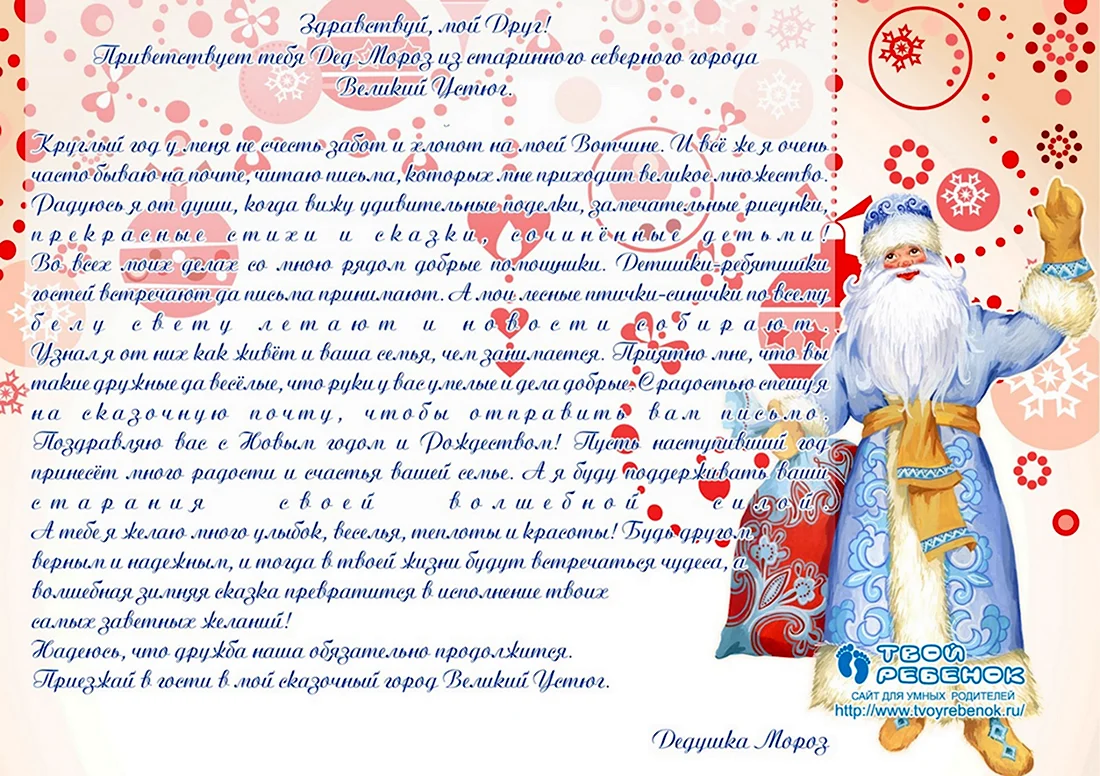 Здравствуй, мой Друг!
Приветствует тебя Дед Мороз из старинного северного города
Великий Устюг.
Круглый год у меня не счесть забот и хлопот на моей Вотчине. И всё же я очень
часто бываю на почте, читаю письма, которых мне приходит великое множество.
Радуюсь я от души, когда вижу удивительные поделки, замечательные рисунки,
прекрасные стихи и сказки, сочинённые детьми!
Во всех моих делах со мною рядом добрые помощники. Детишки-ребятишки
гостей встречают да письма принимают. А мои лесные птички-синички по всему
белу свету летают и новости собирают.
Узнал я от них как живёт и ваша семья, чем занимается. Приятно мне, что вы
такие дружные да весёлые, что руки у вас умелые и дела добрые. С радостью спешу я
на сказочную почту, чтобы отправить вам письмо.
Поздравляю вас с Новым годом и Рождеством! Пусть наступивший год
принесёт много радости и счастья вашей семье. А я буду поддерживать ваши
старания своей волшебной силой.
А тебе я желаю много улыбок, веселья, теплоты и красоты! Будь другом
верным и надежным, и тогда в твоей жизни будут встречаться чудеса, а
волшебная зимняя сказка превратится в исполнение твоих
самых заветных желаний!
Надеюсь, что дружба наша обязательно продолжится.
Приезжай в гости в мой сказочный город Великий Устюг.
Дедушка Мороз
ТВОЙ
РЕБЕНОК
САЙТ ДЛЯ УМНЫХ РОДИТЕЛЕЙ
http://www.tvoyrebenok.ru/